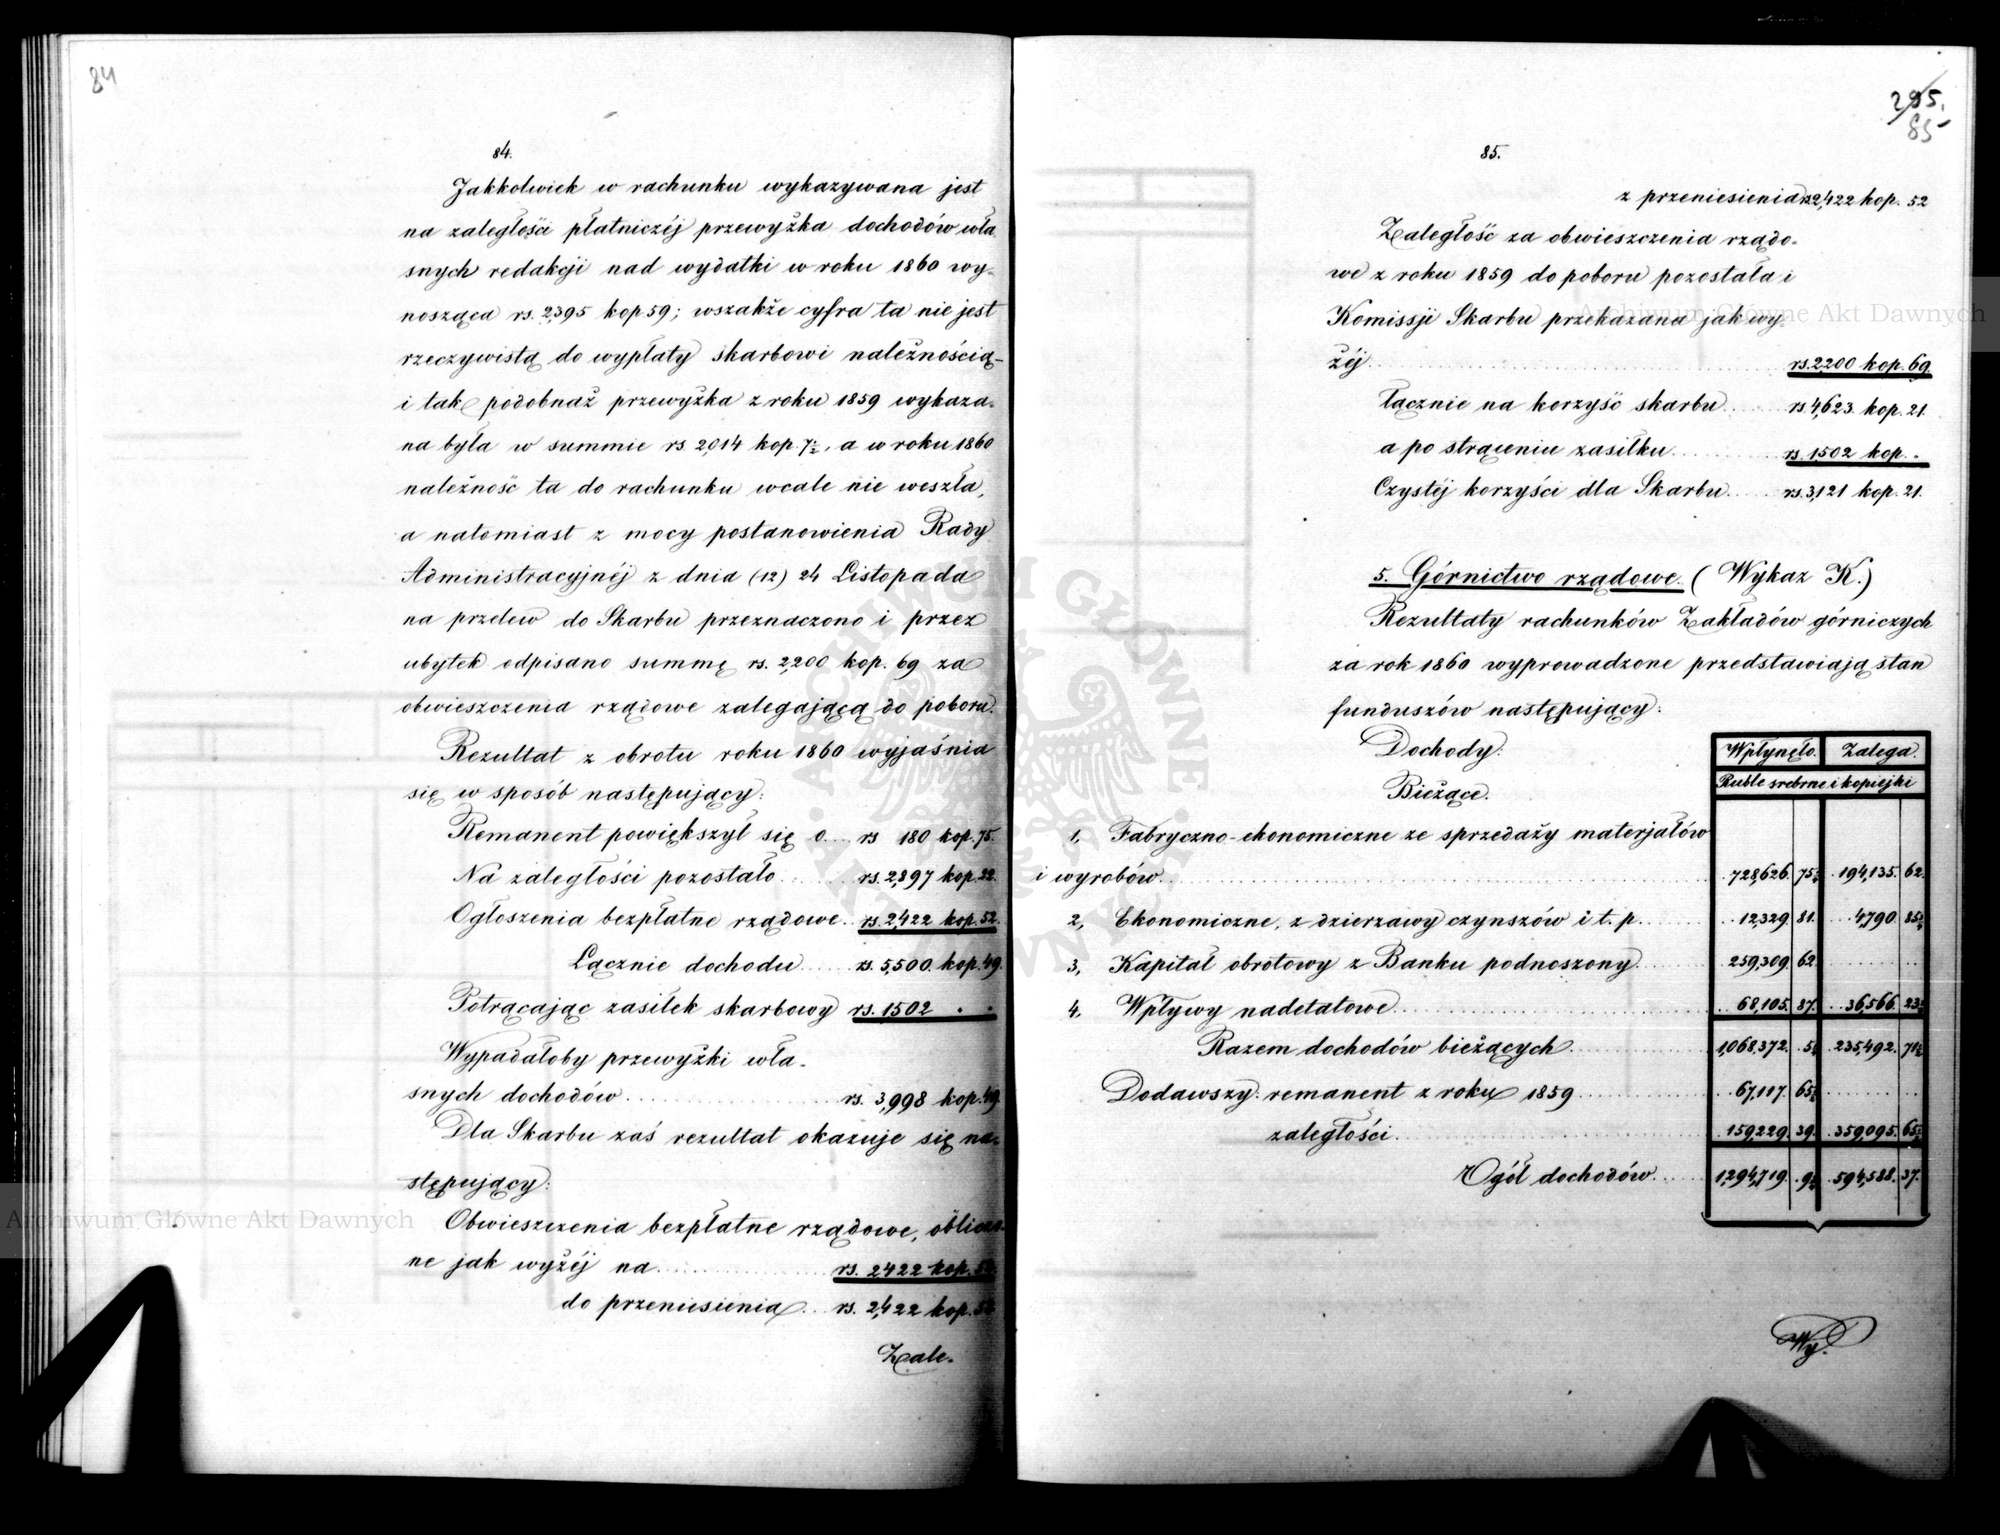 84
84.
Jakkolwiek w rachunku wykazywana jest
na zaległości płatniczéj przewyżka dochodów wła-
snych redakcji nad wydatki w roku 1860 wy-
nosząca rs. 2,395 kop 59; wszakże cyfra ta nie jest
rzeczywistą do wypłaty skarbowi należnością –
i tak podobnaż przewyżka z roku 1859 wykaza-
na była w summie rs. 2,014 kop 7½, a w roku 1860
należność ta do rachunku wcale nie weszła,
a natomiast z mocy postanowienia Rady
Administracyjnéj z dnia (12) 24 Listopada
na przelew do Skarbu przeznaczono i przez
ubytek odpisano summę rs. 2,200 kop. 69 za
obwieszczenia rządowe zalegającą do poboru.
Rezultat z obrotu roku 1860 wyjaśnia
się w sposób następujący:
Remanent powiększył się o.... rs 180 kop. 75.
Na zaległości pozostało....... rs. 2,897 kop. 22.
Ogłoszenia bezpłatne rządowe.. rs. 2,422 kop. 52.
Łącznie dochodu...... rs. 5,500. kop. 49.
Potrącając zasiłek skarbowy rs. 1502 . .
Wypadałoby przewyżki wła-
snych dochodów.................... rs. 3,998 kop. 49.
Dla Skarbu zaś rezultat okazuje się na-
stępujący:
Obwieszczenia bezpłatne rządowe, oblicza-
ne jak wyżéj na................ rs. 2422 kop. 52.
do przeniesienia... rs. 2,422 kop. 52
Zale-
295.
85
85.
z przeniesienia rs 2,422 kop. 52
Zaległość za obwieszczenia rządo-
we z roku 1859 do poboru pozostała i
Komissji Skarbu przekazana jak wy-
żéj........................................ rs. 2,200 kop. 69
Łącznie na korzyść skarbu....... rs. 4,623. kop. 21.
a po strąceniu zasiłku............ rs. 1502 kop. .
Czystéj korzyści dla Skarbu..... rs. 3,121 kop. 21.
5. Górnictwo rządowe. (Wykaz K.)
Rezultaty rachunków Zakładów górniczych
za rok 1860 wyprowadzone przedstawiają stan
funduszów następujący:
Dochody: Wpłynęło. Zalega.
Bieżące. Ruble srebrne i kopiejki
1, Fabryczno-ekonomiczne ze sprzedaży materjałów
i wyrobów........ 728,626. 75½ 194,135. 62.
2, Ekonomiczne, z dzierzawy czynszów i t. p...... 12,329. 81. 4,790 85½
3, Kapitał obrotowy z Banku podnoszony...... 259,309. 62.
4, Wpływy nadetatowe...... 68,105. 87. 36,566. 23½
Razem dochodów bieżących...... 1,068,372. 5½ 235,492. 71½
Dodawszy: remanent z roku 1859...... 67,117. 65½
zaległości...... 159,229. 39. 359,095. 65½
Ogół dochodów...... 1,294,719. 9½ 594,588. 37.
Wy-
Archiwum Główne Akt Dawnych
Archiwum Główne Akt Dawnych